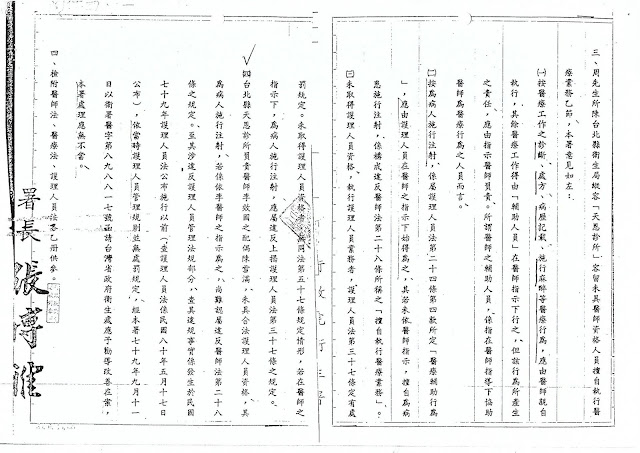 三、周先生所陳台北縣衛生局縱容「天恩診所」容留未具醫師資格人員擅自執行醫
療業務乙節，本署意見如左：
㈠按醫療工作之診斷、處方、病歷記載、施行麻醉等醫療行為，應由醫師親自
執行，其餘醫療工作得由「輔助人員」在醫師指示下行之，但該行為所產生
之責任，應由指示醫師負責。所謂醫師之輔助人員，係指在醫師指導下協助
醫師為醫療行為之人員而言。
㈡按為病人施行注射，係屬護理人員法第二十四條第四款所定「醫療輔助行為
」，應由護理人員在醫師之指示下始得為之，其若未依醫師指示，擅自為病
患施行注射，係構成違反醫師法第二十八條所稱之「擅自執行醫療業務」。
㈢未取得護理人員資格，執行護理人員業務者，護理人員法第三十七條定有處
罰規定。未取得護理人員資格者，無同法第五十七條規定情形，若在醫師之
指示下，為病人施行注射，應屬違反上揭護理人員法第三十七條之規定。
㈣台北縣天恩診所負責醫師李效國之配偶陳雲滿，未具合法護理人員資格，其
為病人施行注射，若係依李醫師之指示為之，尚難認屬違反醫師法第二十八
條之規定。至其涉違反護理人員管理法規部分，查其違規事實係發生於民國
七十九年護理人員法公布施行以前（查護理人員法係民國八十年五月十七日
公布），依當時護理人員管理規則並無處罰規定，經本署七十九年九月十一
日以衛署醫字第八九八八一七號函請台灣省政府衛生處應予勸導改善在案，
本署處理應無不當。
四、檢附醫師法、醫療法、護理人員法各乙册供參。
署長 張博雅